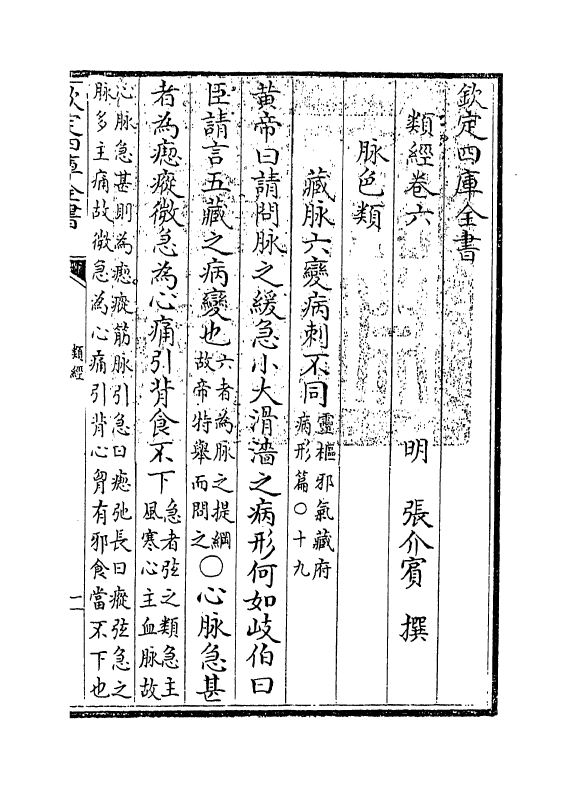 欽定四庫全書
類經卷六
明 張介賓 撰
脉色類
藏脉六變病刺不同靈樞邪氣藏府病形篇○十九
黃帝曰請問脉之緩急小大滑濇之病形何如岐伯曰
臣請言五藏之病變也六者為脉之提綱故帝特舉而問之○心脉急甚
者為瘛瘲微急為心痛引背食不下急者弦之類急主風寒心主血脉故
心脉急甚則為瘛瘲筋脉引急曰瘛弛長曰瘲弦急之脉多主痛故微急為心痛引背心胷有邪食當不下也
欽定四庫全書
類經